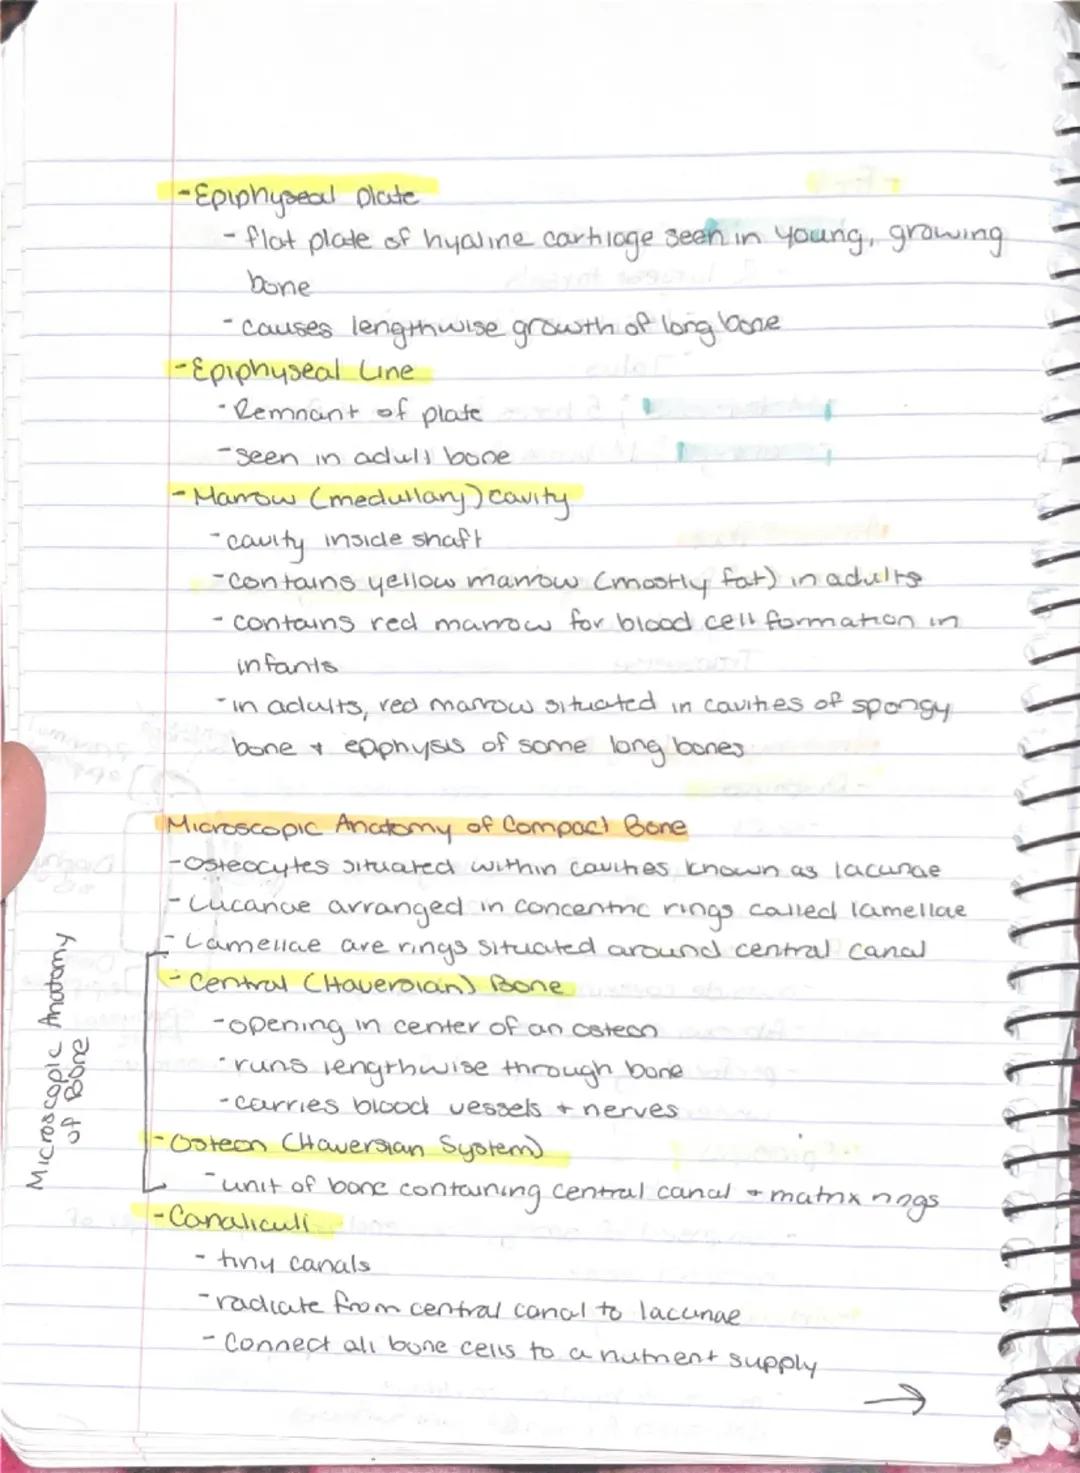 - Epiphyseal Plate
- flat plate of hyaline cartilage seen in young, growing
bone
- causes lengthwise growth of long bone
- Epiphyseal Line
- Remnant of plate
- seen in adult bone
- Marrow (medullary) cavity
- cavity inside shaft
- contains yellow marrow (mostly fat) in adults
- contains red marrow for blood cell formation in
infants
- in adults, red marrow situated in cavities of spongy
bone + epiphysis of some long bones
Microscopic Anatomy of Compact Bone
- Osteocytes situated within cavities known as lacunae
- Lucanae arranged in concentric rings called lamellae
- Lamellae are rings situated around central canal
- Central (Haversian) Bone
- opening in center of an osteon
- runs lengthwise through bone
- carries blood vessels + nerves
- Osteon (Haversian System)
- unit of bone containing central canal + matrix rings
- Canaliculi
- tiny canals
- radiate from central canal to lacunae
- Connect all bone cells to a nutrient supply
→
Microscopic Anatomy
of Bone